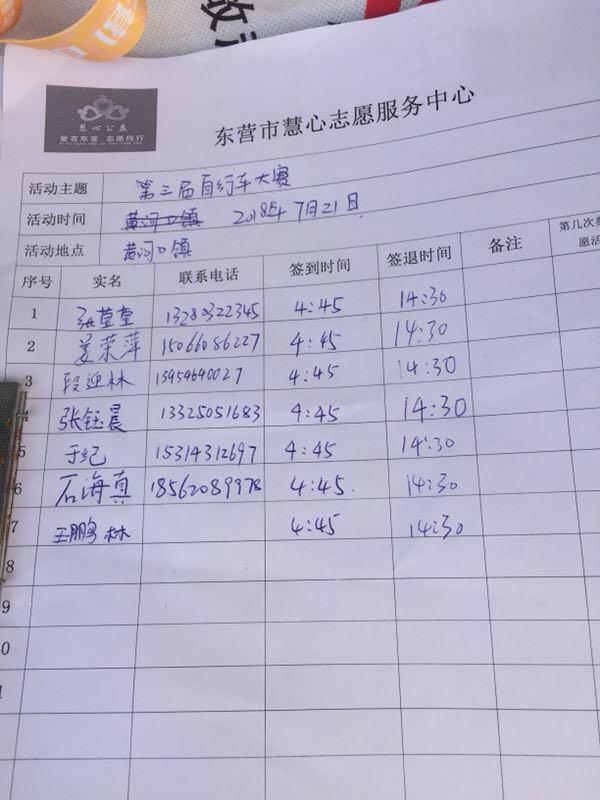 慧心公益
爱在东营 志愿同行
东营市慧心志愿服务中心
活动主题 第三届自行车大赛
活动时间 黄河口镇 2018年7月21日
活动地点 黄河口镇
序号 实名 联系电话 签到时间 签退时间 备注 第几次参
愿活
1 张莹莹 13280322345 4:45 14:30
2 姜荣萍 15066086227 4:45 14:30
3 段迎林 13954640027 4:45 14:30
4 张钰晨 13325051683 4:45 14:30
5 于纪 15314312697 4:45 14:30
6 石海真 18562089978 4:45. 14:30
7 王鹏林 4:45 14:30
8
9
0